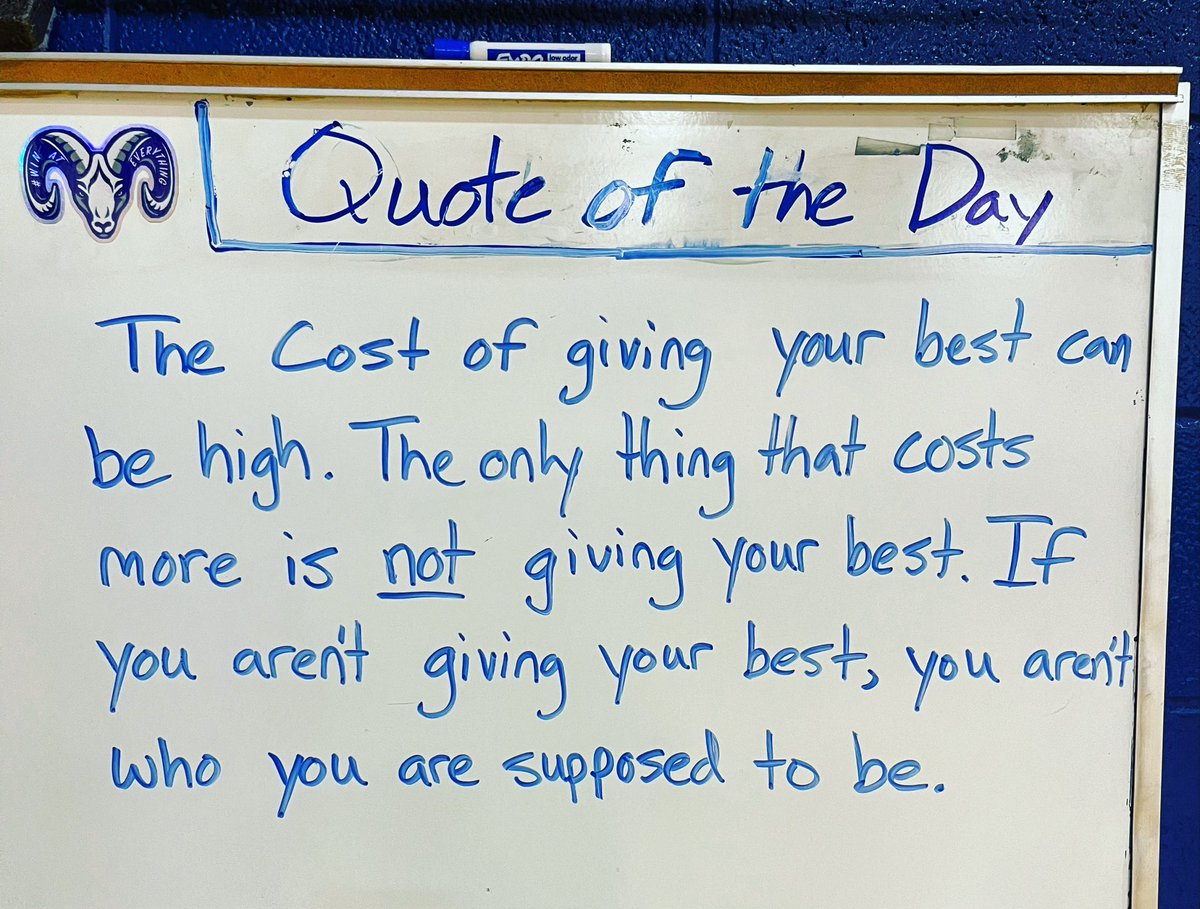 EXPO low odor
#WIN AT EVERYTHING
Quote of the Day
The Cost of giving your best can
be high. The only thing that costs
more is not giving your best. If
you aren't giving your best, you aren't
who you are supposed to be.